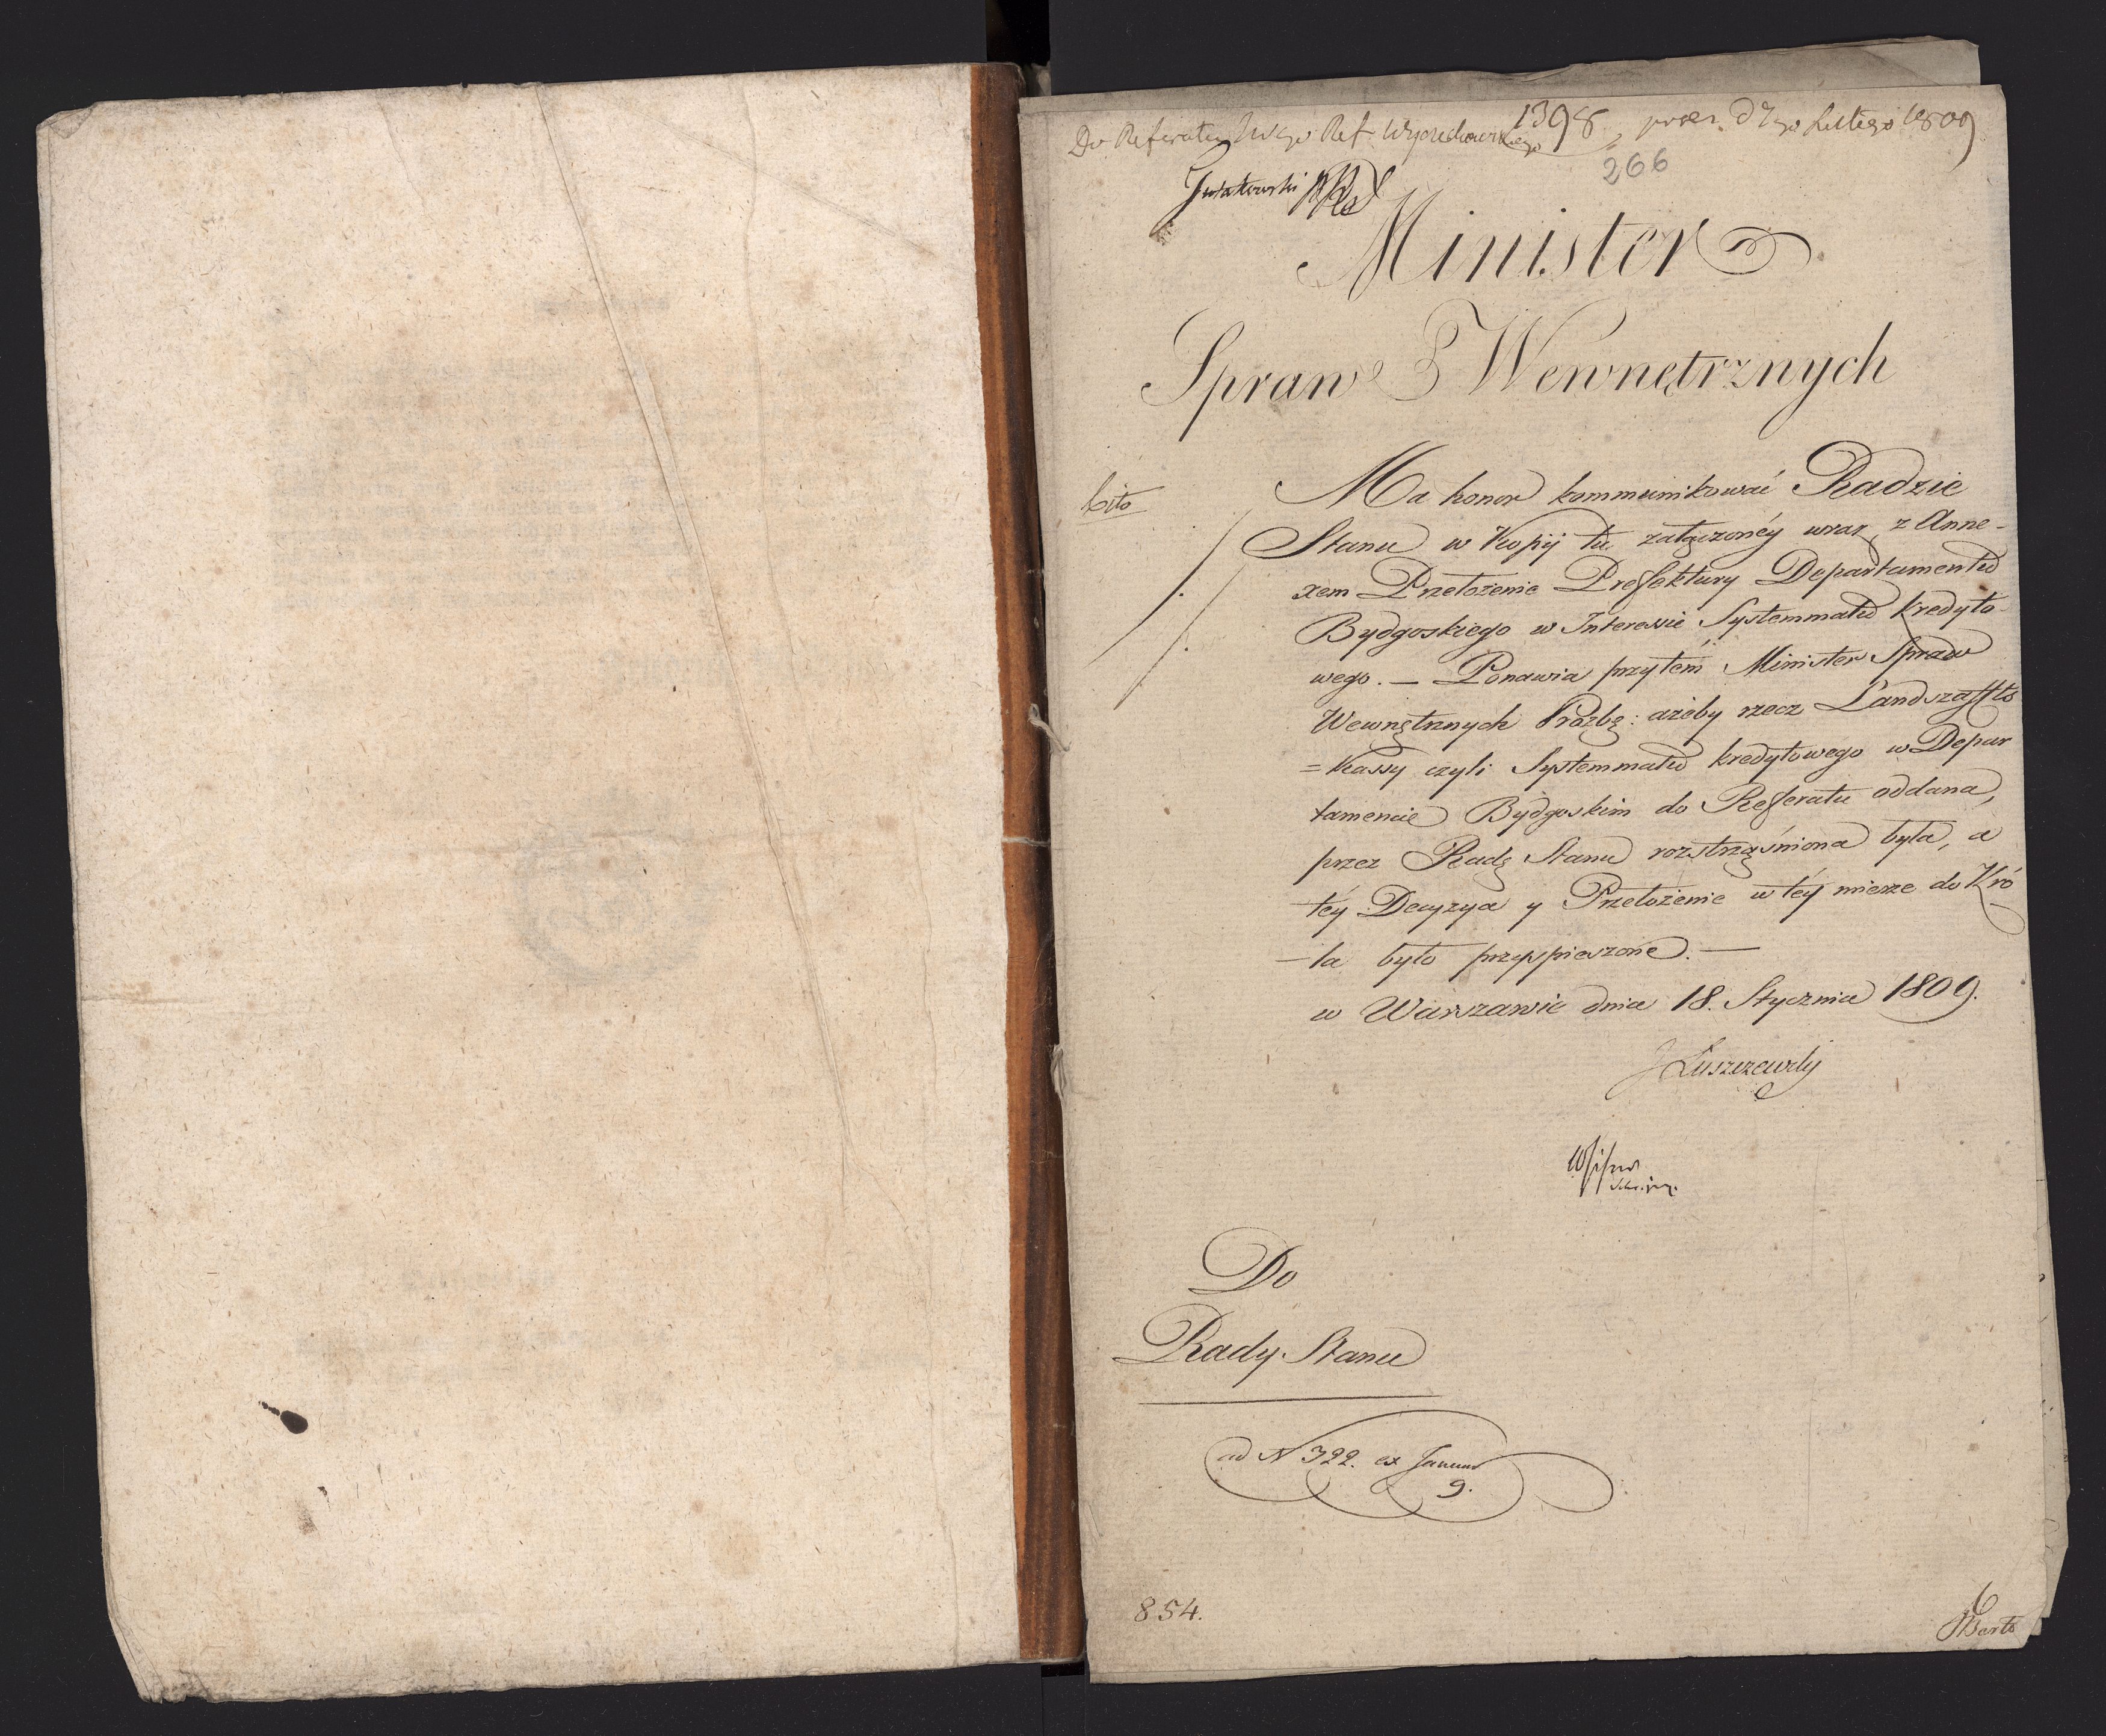 Do Referatu Ref
1398. praes. d 7go Lutego 1809
266
Minister
Spraw Wewnętrznych
Cito
Ma honor kommunikować Radzie
Stanu w Kopij tu załączonéy wraz z Anne-
xem Przełożenie Preffektury Departamentu
Bydgoskiego w Interessie Systemmatu kredyto-
wego. — Ponawia przytém Minister Spraw
Wewnętrznych Proźbę: ażeby rzecz Landszaffts
=Kassy czyli Systemmatu kredytowego w Depar
tamencie Bydgoskim do Refferatu oddana,
przez Radę Stanu roztrząśniona była, a
téy Decyzya y Przełożenie w téy mierze do Kró
-la było przyspieszone. —
w Warszawie dnia 18. Stycznia 1809.
J Łuszczewsky
Do
Rady Stanu
ad N 322. ex Januar
9.
854.
6